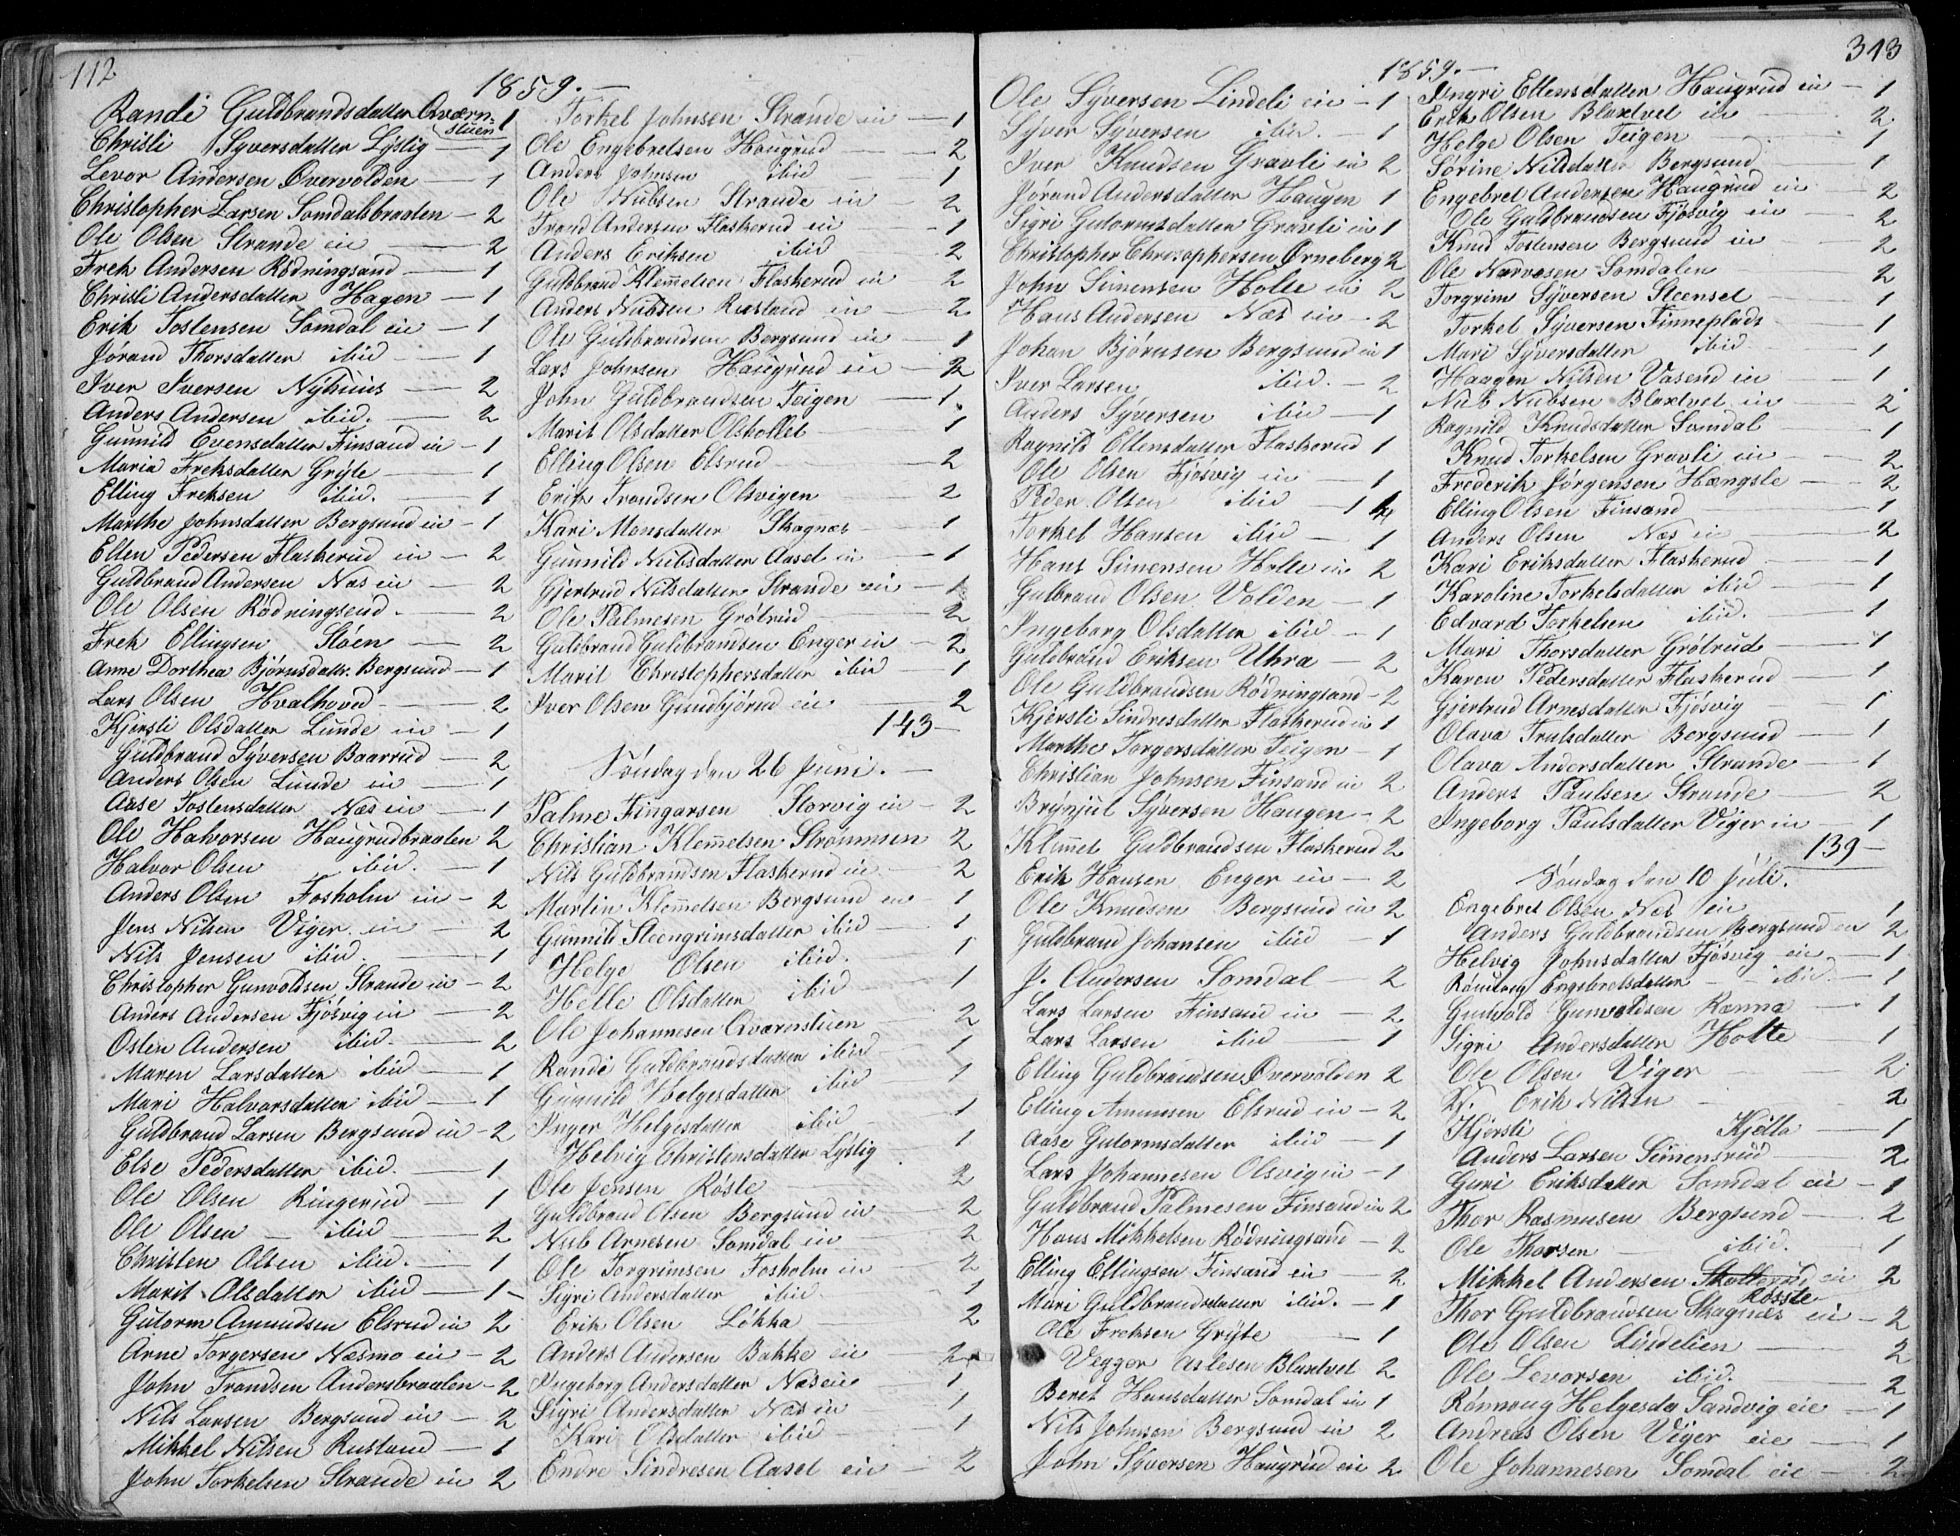 112
1859.
Randi Guldbrandsdatter Qværn-
stuen 1
Christi Syversdatter Lystig 1
Levor Andersen Øvervolden 1
Christopher Larsen Somdalsbraaten 2
Ole Olsen Strande eie 2
Frek Andersen Rødningsand 1
Christi Andersdatter Hagen 1
Erik Tostensen Somdal eie 1
Jørand Thorsdatter ibid 1
Iver Iversen Nyhuus 2
Anders Andersen ibid. 2
Gunnild Evensdatter Finsand eie 1
Maria Freksdatter Gryte 1
Elling Freksen ibid. 1
Marthe Johnsdatter Bergsund eie 1
Ellen Pedersen Flaskerud eie 2
Guldbrand Andersen Næs eie 2
Ole Olsen Rødningsend. 2
Frek Ellingsen Støen 2
Anne Dorthea Bjørnsdatt. Bergsund 1
Lars Olsen Hvalhoved 2
Kjersti Olsdatter Lunde eie 1
Guldbrand Syversen Baarrud 2
Anders Olsen Lunde eie 1
Aase Tostensdatter Næs eie 1
Ole Halvorsen Haugrudbraaten 2
Halvor Olsen ibid. 1
Anders Olsen Fosholm eie 2
Jens Nilsen Viger eie 2
Nils Jensen ibid. 1
Christopher Gunvoldsen Strande eie 2
Anders Andersen Fjøsvig eie 2
Osten Andersen ibid. 2
Maren Larsdatter ibid 1
Mari Halvorsdatter ibid 1
Guldbrand Larsen Bergsund eie 2
Else Pedersdatter ibid. 1
Ole Olsen Ringerud 1
Ole Olsen ibid 2
Christen Olsen ibid. 1
Marit Olsdatter ibid 1
Gutorm Amundsen Elsrud eie 2
Arne Torgersen Næsmo eie 2
John Trondsen Andersbraaten 2
Nils Larsen Bergsund eie 2
Mikkel Nilsen Rustand 1
John Torkelsen Strande eie 2
Torkel Johnsen Strande eie 1
Ole Engebretsen Haugrud 2
Anders Johnsen ibid 1
Ole Nubsen Strande eie 2
Trond Andersen Flaskerud eie 1
Anders Eriksen ibid 2
Guldbrand Klemmetsen Flaskerud eie 2
Anders Nubsen Rustand eie 2
Ole Guldbrandsen Bergsund eie 1
Lars Johnsen Haugrud eie 2
John Guldbrandsen Teigen 1
Marit Olsdatter Olskollet 1
Elling Olsen Elsrud 2
Erik Trondsen Olsvigen 2
Kari Monsdatter Skagnæs 1
Gunnild Nubsdatter Aaset eie 1
Gjertrud Nilsdatter Strande eie
Ole Palmesen Grøtrud 2
Guldbrand Guldbrandsen Enger eie 2
Marit Christophersdatter ibid 1
Iver Olsen Gundbjørud eie 2
143
Søndag den 26 Juni.
Palme Fingarsen Storvig eie 2
Christian Klemmetsen Strømmen 2
Nils Guldbrandsen Flaskerud eie 2
Martin Klemmetsen Bergsund eie 1
Gunnild Steengrimsdatter ibid 1
Helge Olsen ibid. 1
Helle Olsdatter ibid 1
Ole Johannesen Qværnstuen 2
Randi Guldbrandsdatter ibid 1
Gunnild Helgesdatter ibid 1
Inger Helgesdatter ibid 1
Helvig Christensdatter Lystig 1
Ole Jensen Røste 2
Guldbrand Olsen Bergsund eie 2
Nub Arnesen Somdal eie 2
Ole Torgrimsen Fosholm eie 2
Sigri Andersdatter ibid 1
Erik Olsen Løkka 2
Anders Andersen Bakke eie 2
Ingeborg Andersdatter Næs eie 1
Sigri Andersdatter Næs eie 1
Kari Olsdatter ibid 1
Endre Sindresen Aaset eie 2
313
1859.
Ole Syversen Lindeli eie 1
Syver Syversen ibid. 1
Iver Knudsen Gravli eie 2
Jørand Andersdatter Haugen 1
Sigri Gutormsdatter Gravli eie 1
Christopher Christophersen Ørneberg 2
John Simensen Holte eie 2
Hans Andersen Næs eie 2
Johan Bjørnsen Bergsund eie 1
Iver Larsen ibid. 2
Anders Syversen ibid 1
Ragnild Ellensdatter Flaskerud 1
Ole Olsen Fjøsvig eie 1
Peder Olsen ibid 1
Torkel Hansen ibid 1
Hans Simensen Holte eie 2
Gulbrand Olsen Volden 1
Ingeborg Olsdatter ibid 1
Guldbrand Eriksen Uhra 2
Ole Guldbrandsen Rødningsand 2
Kjersti Sindresdatter Flaskerud eie 1
Marthe Torgersdatter Teigen 1
Christian Johnsen Finsand eie 2
Brynjul Syversen Haugen 2
Klemmet Guldbrandsen Flaskerud 2
Erik Hansen Enger eie 2
Ole Knudsen Bergsund eie 2
Guldbrand Johansen ibid 1
J. Andersen Somdal 2
Lars Larsen Finsand eie 2
Lars Larsen ibid 1
Elling Guldbrandsen Øvervolden 2
Elling Amunsen Elsrud eie 2
Aase Gutormsdatter ibid 1
Lars Johannesen Olsvigeie 1
Guldbrand Palmesen Finsand eie 2
Hans Mikkelsen Rødningsand 2
Elling Ellingsen Finsand eie 2
Mari Guldbrandsdatter ibid. 1
Ole Freksen Gryte 1
Vegger Aslesen Blaxtvet 2
Beret Hansdatter Somdal eie 1
Nils Johnsen Bergsund eie 2
John Syversen Haugrud eie 2
Yngri Ellensdatter Haugrud eie 1
Erik Olsen Blaxtvet eie 2
Helge Olsen Teigen 1
Sørine Nilsdatter Bergsund 1
Engebret Andersen Haugrud eie 2
Ole Guldbrandsen Fjøsvig eie 2
Knud Tostensen Bergsund eie 2
Ole Narvesen Somdalen 2
Torgrim Syversen Steenset 1
Torkel Syversen Finneplads 1
Mari Syversdatter ibid 1
Haagen Nilsen Vasend eie 1
Nub Nubsen Blaxtvet eie 2
Ragnild Knudsdatter Somdal 1
Knud Torkelsen Gravli eie 2
Frederik Jørgensen Hængsle 2
Elling Olsen Finsand 1
Anders Olsen Næs eie 2
Kari Eriksdatter Flaskerud 1
Karoline Torkelsdatter ibid 1
Edvard Torkelsen ibid. 1
Mari Thorsdatter Grøtrud 1
Karen Pedersdatter Flaskerud 1
Gjertrud Arnesdatter Fjøsvig 1
Olava Trulsdatter Bergsund 1
Olava Andersdatter Strande 1
Anders Paulsen Strande 2
Ingeborg Paulsdatter Viger eie 1
139
Søndag den 10 Juli.
Engebret Olsen Næs eie 1
Anders Guldbrandsen Bergsund eie 2
Helvig Johnsdatter Fjøsvig eie 1
Rønnaug Engebretsdatter ibid. 1
Gunvold Gunvoldsen Ramna 1
Sigri Andersdatter Holte 1
Ole Olsen Viger 2
Erik Nilsen 2
Kjersti Kjølla 1
Anders Larsen Simensrud 2
Guri Eriksdatter Somdal eie 1
Thor Rasmusen Bergsund 2
Ole Thorsen ibid. 1
Mikkel Andersen Skollerud eie 2
Røste
Thor Guldbrandsen Skagnæs eie 2
Ole Olsen Lindelien 2
Ole Levorsen ibid. 2
Rønnoug Helgesda Sandvig eie 1
Andreas Olsen Viger eie 1
Ole Johannesen Somdal eie 2